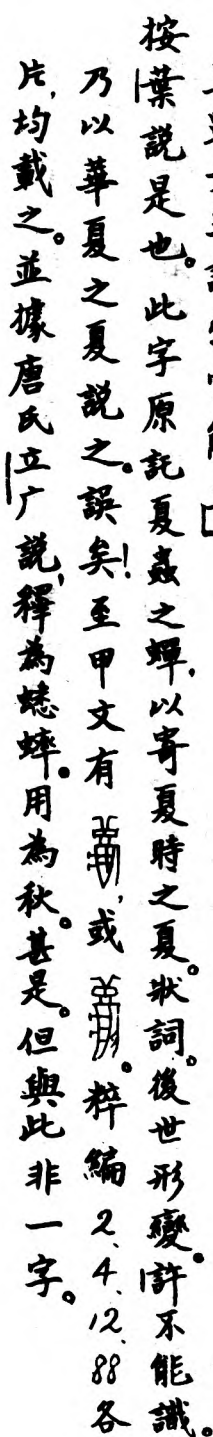 按葉說是也。此字原託夏蟲之蟬,以寄夏時之夏。狀詞。後世形變。許不能識。
乃以華夏之夏說之。誤矣!至甲文有,或。粹編2、4、12、88各
片,均載之。並據唐氏立广說,釋為蟋蟀。用為秋。甚是。但與此非一字。